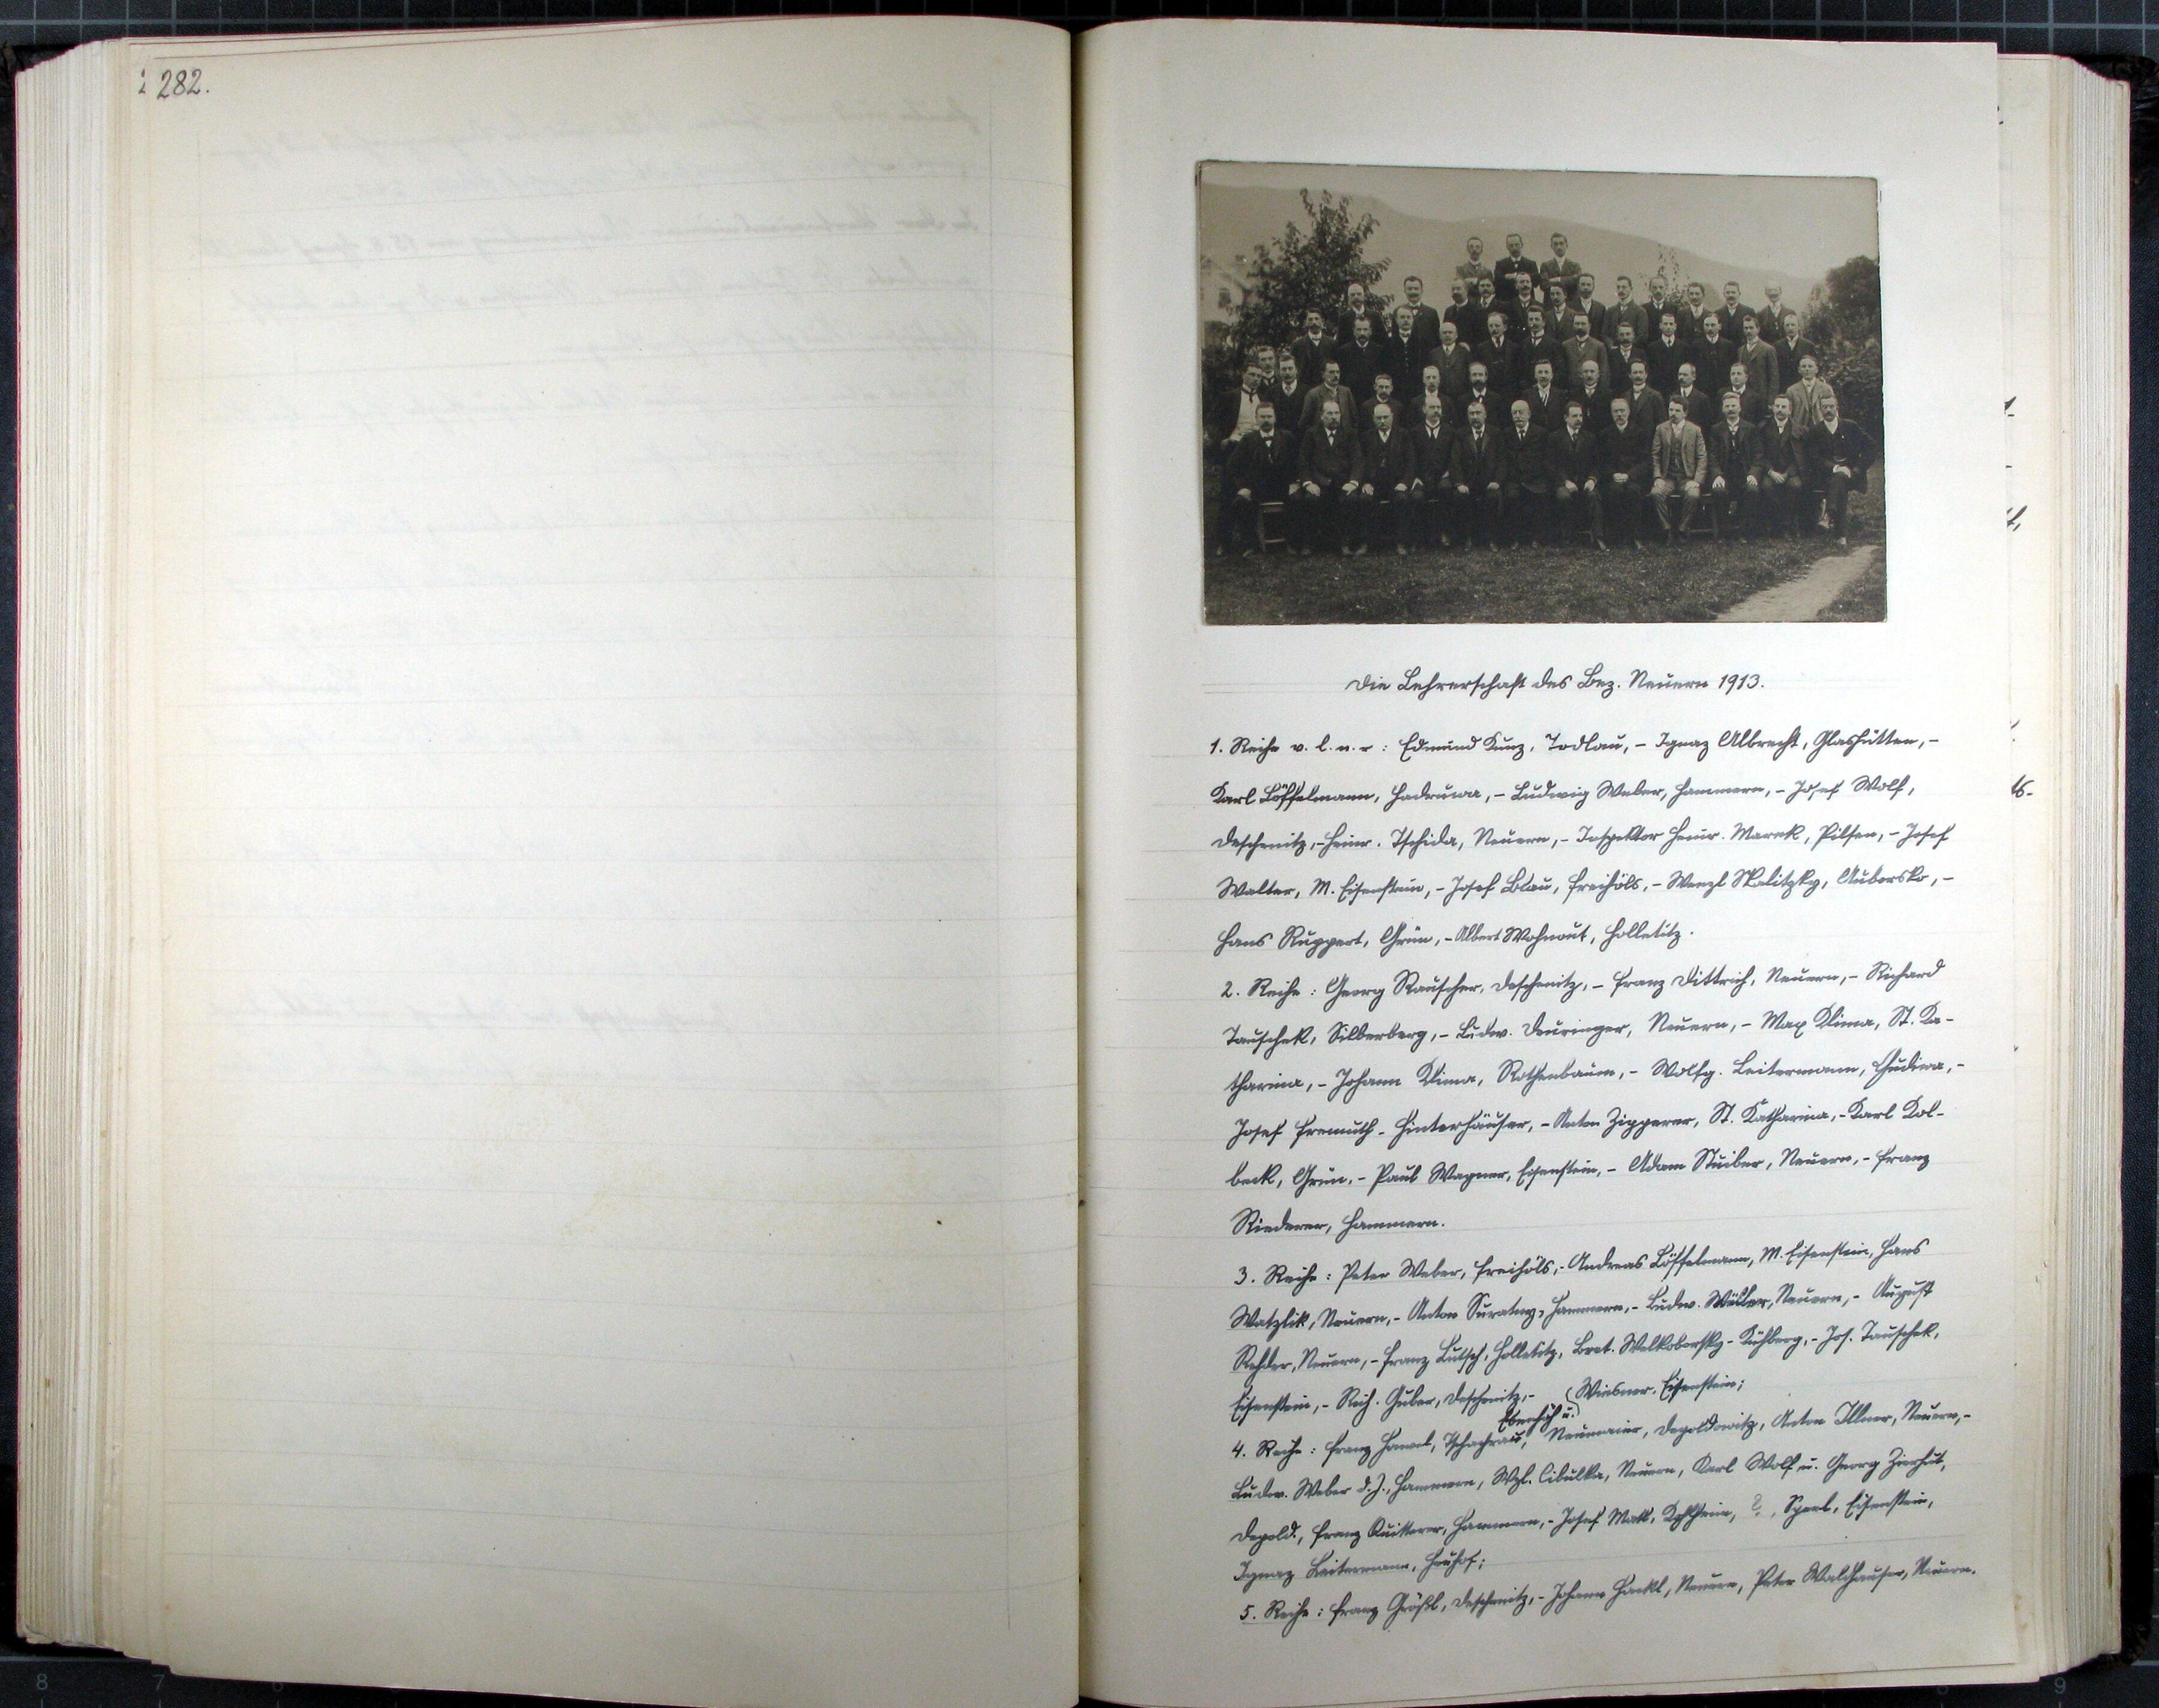 282.
Die Lehrerschaft des Bez. Neuern 1913.
1. Reihe v. l. n. r : Edmund Kunz, Todlau, - Ignaz Albrecht, Glashütten, -
Karl Löffelmann, Hadruwa, - Ludwig Weber, Hammern, - Josef Wolf,
Deschenitz, - Heinr. Tschida, Neuern, - Inspektor Heinr. Marek, Pilsen, - Josef
Walter, M. Eisenstein, - Josef Blau, Freihöls, - Wenzl Skalitzky, Aubersko, -
Hans Ruppert, Grün, - Albert Wohnout, Holletitz.
2. Reihe : Georg Rauscher, Deschenitz, - Franz Dittrich, Neuern, - Richard
Tauschek, Silberberg, - Ludw. Deuringer, Neuern, - Max Klima, St. Ka-
tharina, - Johann Klima, Rothenbaum, - Wolfg. Leitermann, Chudiwa, -
Josef Fremuth - Hinterhäuser, - Anton Zipperer, St. Katharina, - Karl Kol-
beck, Grün, - Paul Wagner, Eisenstein, - Adam Stuiber, Neuern, - Franz
Riederer, Hammern.
3. Reihe : Peter Weber, Freihöls, - Andreas Löffelmann, M. Eisenstein, Hans
Watzlik, Neuern, - Anton Hammern, - Ludw. Müller, Neuern, - August
Rehder, Neuern, - Franz Lutsch, Holletitz, Bret. Welkoborsky - Kühberg, - Jos. Tauschek,
Eisenstein, - Rich. Gruber, Deschenitz, - Wiesner, Eisenstein;
4. Reihe : Franz Hawel, Tschachrau, u. Neumaier, Depoldowitz, Anton Illner, Neuern, -
Ludw. Weber d. J., Hammern, Wzl. Cibulka, Neuern, Karl Wolf u. Georg Zierhut,
Depold., Franz Hammern, - Josef Mak, Kohlheim, ?, Sperl, Eisenstein,
Ignaz Leitermann,
5. Reihe : Franz Größl, Deschenitz, - Johann Hackl, Neuern, Peter Waldhauser, Neuern.